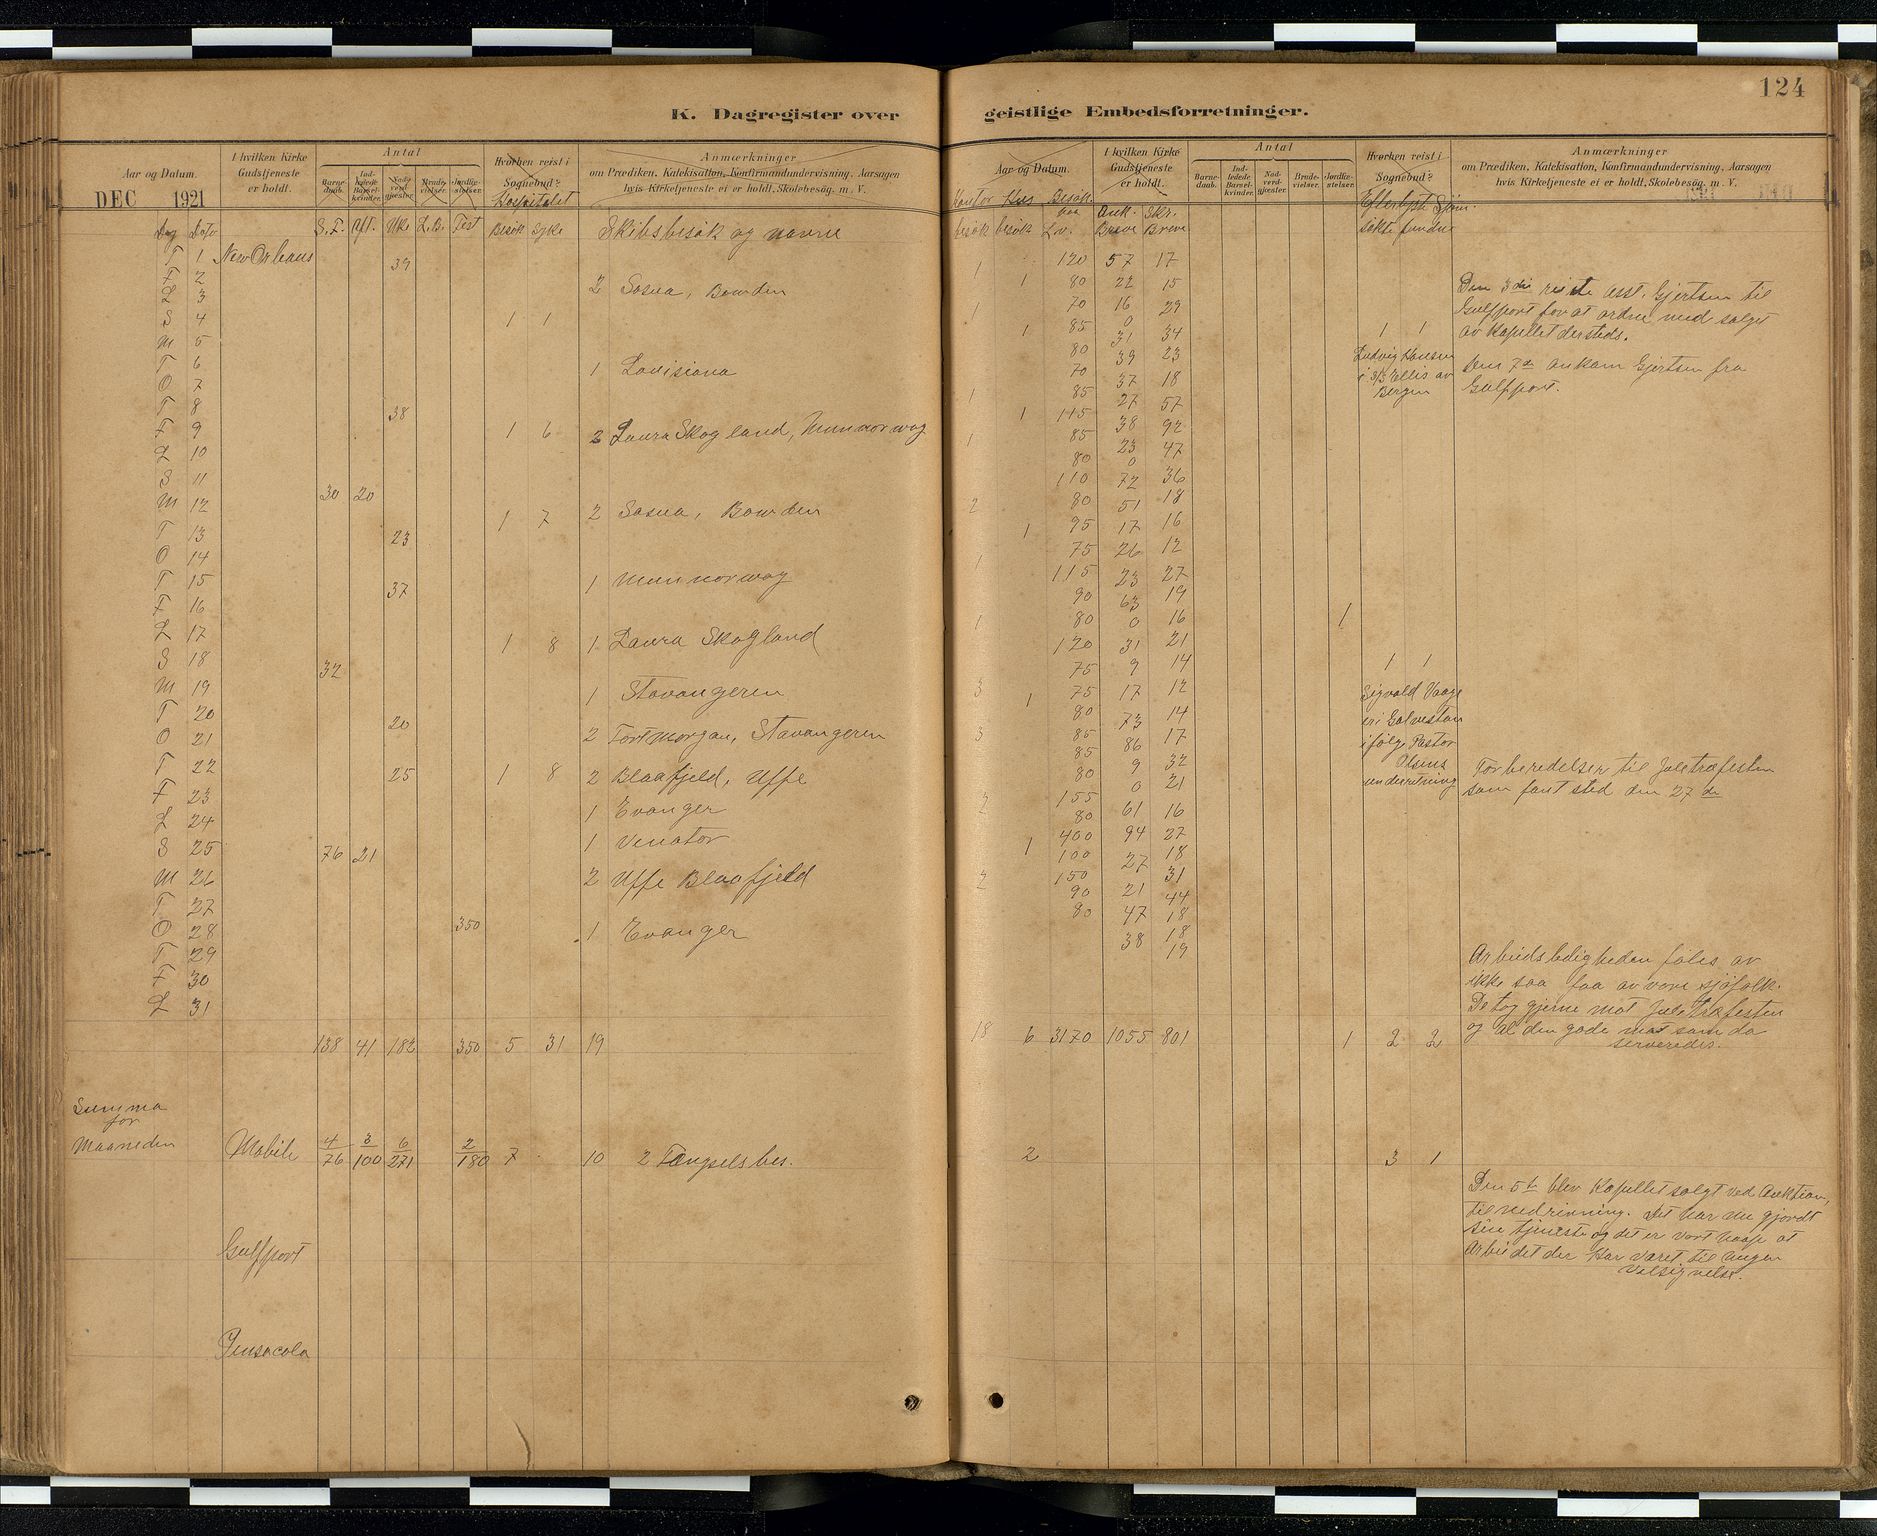 124
K. Dagregister over geistlige Embedsforretninger.
Aar og Datum.
I hvilken Kirke Gudstjeneste er holdt.
Antal
Barnedaab. Indledede Barselkvinder. Nadverdgjæster. Brudevielser. Jordfæstelser.
Hvorhen reist i Sognebud?
Anmærkninger
om Prædiken, Katekisation, Konfirmandundervisning, Aarsagen
hvis Kirketjeneste ei er holdt, Skolebesøg, m. V.
DEC 1921
Hospitalet
Dag Dato S.F. Aft. Uke L.B. Fest Besøk Syke Skibsbesøk og navne
T 1 New Orleans 39
F 2 2 Sosua, Bowden
L 3
S 4 1 1
M 5
T 6 1 Louisiana
O 7
T 8 38
F 9 1 6 2 Laura Skogland, Munnorway
L 10
S 11 30 20
M 12 1 7 2 Sosua, Bowden
T 13 23
O 14
T 15 37 1 Munnorway
F 16
L 17 1 8 1 Laura Skogland
S 18 32
M 19 1 Stavangeren
T 20 20
O 21 2 Fort Morgan, Stavangeren
T 22 25 1 8 2 Blaafjeld, Uffe
F 23 1 Evanger
L 24 1 Venator
S 25 76 21
M 26 2 Uffe Blaafjeld
T 27 350
O 28 1 Evanger
T 29
F 30
L 31
138 41 182 350 5 31 19
Summa
for
Maaneden Mobile 4/76 3/100 6/271 2/180 7 10 2 Fængselsbes.
Gulfport
Pensacola
Aar og Datum.
I hvilken Kirke Gudstjeneste er holdt.
Antal
Barnedaab. Indledede Barselkvinder. Nadverdgjæster. Brudevielser. Jordfæstelser.
Hvorhen reist i Sognebud?
Anmærkninger
om Prædiken, Katekisation, Konfirmandundervisning, Aarsagen
hvis Kirketjeneste ei er holdt, Skolebesøg, m. V.
Kontor Hus Besøk Ank. Skr. Efterlyst Sjøm.
besøk besøk paa L.v. Breve Breve søkte fundne
1 120 57 17
1 80 22 15
1 70 16 29
1 85 0 34
80 31 23
70 39 18
1 85 37 57
1 115 27 92
1 85 38 47
80 23 36
110 0 18
2 80 72 16
1 95 51 12
75 17 27
1 115 26 19
90 23 16
1 80 63 21
120 0 14
75 31 12
3 75 9 14
1 80 17 17
3 85 73 32
85 86 21
80 9 16
2 155 0 27
80 61 18
400 94 31
1 100 27 44
2 150 21 18
90 47 18
80 38 19
1
1 1
Ludvig Hansen
i S/S Ellis av
Bergen
1 1
Sigvald Vaage
er i Galveston
ifølge Pastor
Olsens
underretning
Den 3die reiste asst. Gjertsen til
Gulfport for at ordne med salget
av Kapellet dersteds.
Den 7de ankom Gjertsen fra
Gulfport.
Forberedelser til Juletræfesten
som fant sted den 27de
Arbeidsledigheden føles av
ikke saa faa av vore sjøfolk.
De tog gjerne mot Juletræfesten
og al den gode mat som da
serveredes.
18 6 3170 1055 801 1 2 2
2 3 1
Den 5te blev Kapellet solgt ved Auktion,
til nedrivning. Det har nu gjordt
sin tjeneste og det er vort haap at
Arbeidet der har været til megen
Velsignelse.